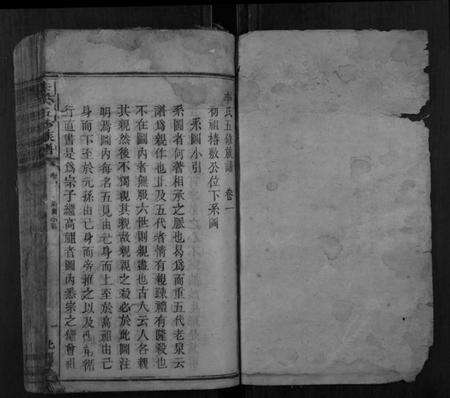 李氏五修族譜 卷一
初祖椿敷公位下系圖
系圖小引
系圖者何著相承之脈也曷爲而重五代老泉云
譜爲親作也止及五代者情有親疎禮有隆殺也
不在圖內者無服六世則親盡也古人云人各親
其親然後不獨親其親故親親之殺必於此圖注
明焉圖內每名五見由元身而上至於高祖由己
身而下至於元孫由己身而旁推之以及
行直書是爲宗子繼高祖者圖內悉宗之繼會祖